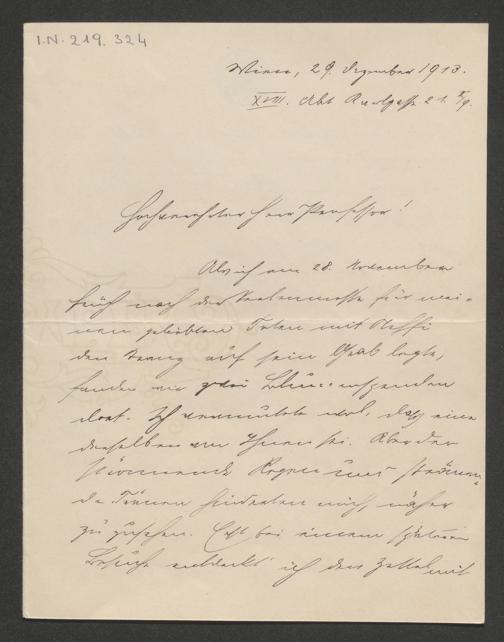 I.N. 219.324
Wien, 29. Dezember 1913.
XVIII. Abt Karlgasse 21. II/9.
Hochverehrter Herr Professor!
Als ich am 28. November
früh nach der Seelenmesse für mei-
nen geliebten Toten mit Steffi
den Kranz auf sein Grab legte,
fanden wir zwei Blumenspenden
dort. Ich vermutete wol, daß eine
derselben von Ihnen sei. Aber der
strömende Regen und strömen-
de Tränen hinderten mich, näher
zu zusehen. Erst bei einem späteren
Besuche entdeckte ich den Zettel mit